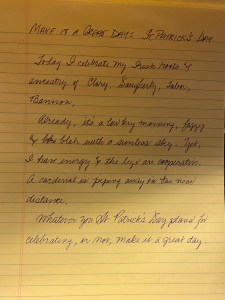 Make it a Great Day: St Patrick's Day
Today I celebrate my Irish roots &
ancestry of Clary, Daugherty,
Bannon.
Already, it's a low key morning, foggy
& blah with a sunless sky. Yet,
I have energy & the legs are cooperative.
A cardinal is peeping away in the near
distance.
Whatever you St. Patrick's Day plans for
celebrating, or not, make it a great day.